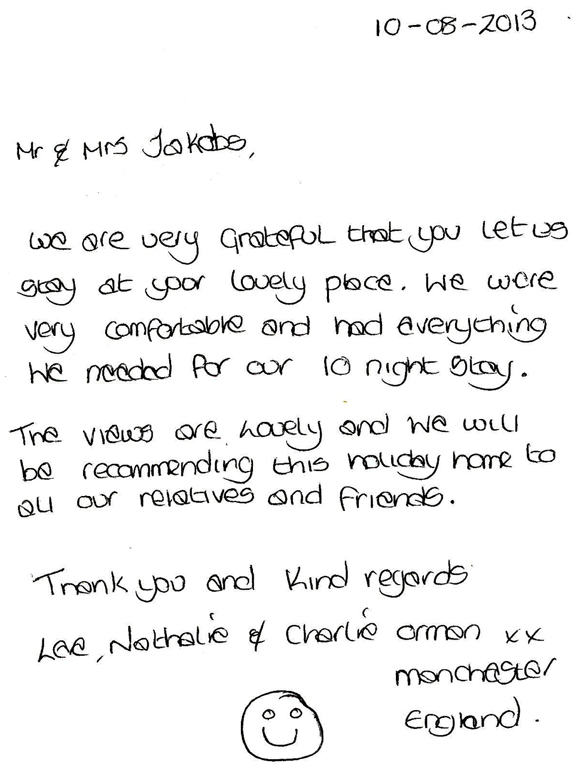 10-08-2013
Mr & Mrs Jakobs,
We are very grateful that you let us
stay at your lovely place. We were
very comfortable and had everything
We needed for our 10 night stay.
The views are lovely and we will
be recommending this holiday home to
all our relatives and friends.
Thank you and kind regards
Lee, Nathalie & Charlie Orman xx
Manchester
England.